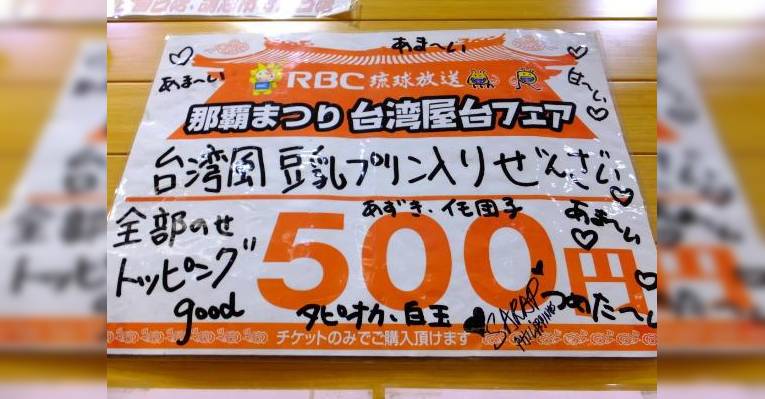 あま〜い
あま〜い
甘〜い
RBC 琉球放送
那覇まつり 台湾屋台フェア
台湾風 豆乳プリン入りぜんざい
あずき、イモ団子
あま〜い
全部のせ
トッピング
good
500円
タピオカ、白玉
SARAP
PHILIPPINE
つめた〜い
チケットのみでご購入頂けます